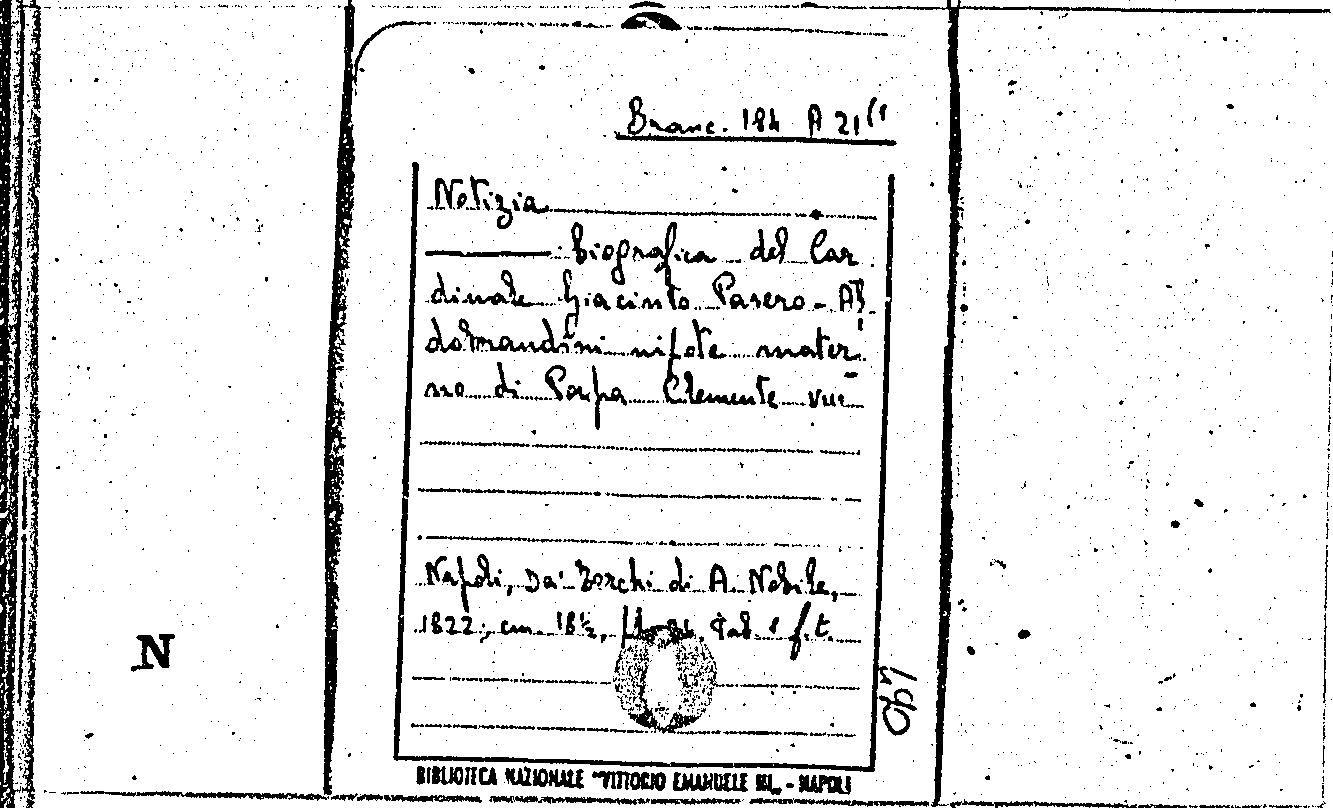 Branc. 184 A 21
Notizia
biografica del Car
dinale Giacinto Pasero - Al
dobrandini nipote mater
no di Papa Clemente VIII
Napoli, Da' Torchi di A. Nobile,
1822; cm. 18½, f.t.
N
BIBLIOTECA NAZIONALE "VITTORIO EMANUELE III„ - NAPOLI